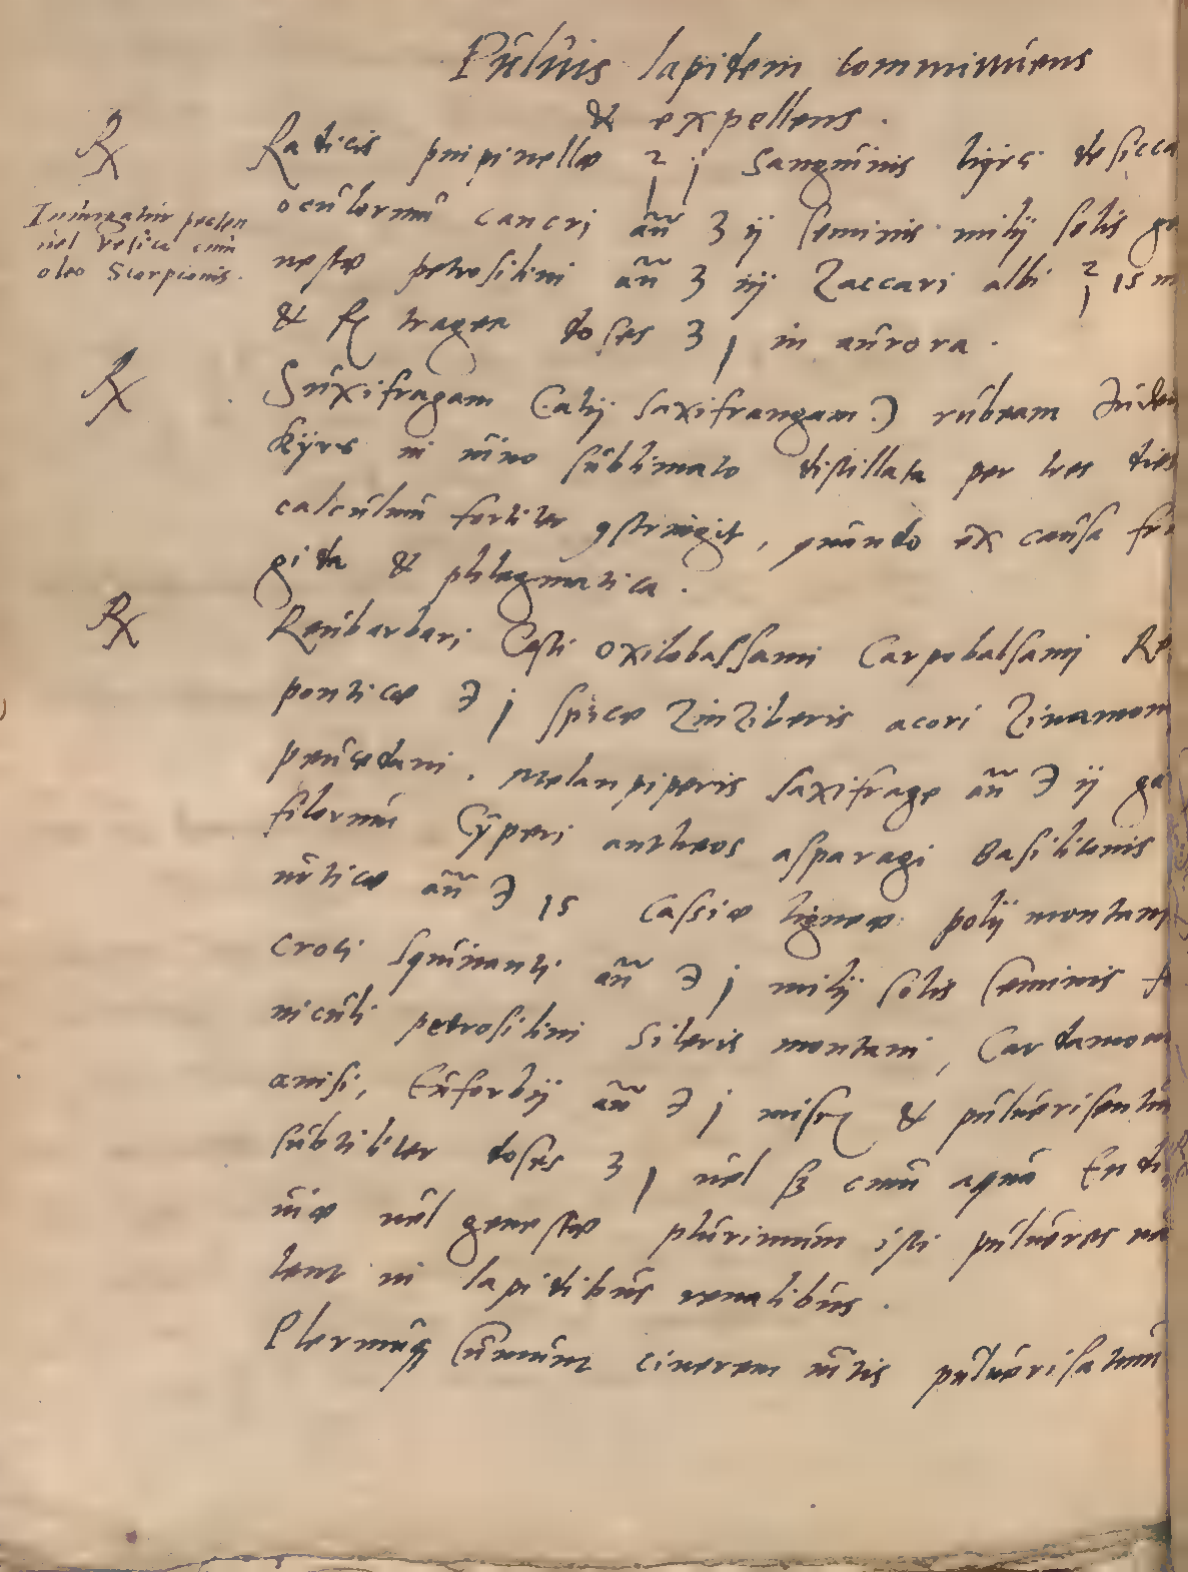 Puluis lapidem comminuens
& expellens.
℞ Radicis pinpinellæ ℥ j sanguinis hijrci desicca
oculorum cancri añ ʒ ij seminis milij solis ge
nestæ petrosilini añ ʒ iij Zaccari albi ℥ is m
& f tragea doses ʒ j in aurora.
Inungatur pecten
uel vesica cum
oleo Scorpionis.
℞ Suxifragam (alij saxifrangam) rubeam
in uino sublimato distillata per tres dies
calculum fortiter ꝯstringit, quando ex causa fri
gida & phlagmatica.
℞ Reubarbari Costi oxilobalssami Carpobalsamj Re
ponticæ ℈ j spicæ Zinziberis acori Zinamom
peucedani. melanpiperis saxifrage añ ℈ ij ga
filorum Cÿperi antheos asparagi Basiliconis
urticæ añ ℈ is Cassiæ ligneæ polij montani
croci squinanti añ ℈ j milij solis seminis fe
niculi petrosilini Sileris montani, Cardamom
anisi, Euforbij añ ℈ j & puluerisentur
subtiliter doses ʒ j uel ß cum aqua Endi
uiæ uel genestæ plurimum isti pulueres ua
lent in lapidibus renalibus.
Plerumq sumunt cinerem uitis puluerisatum